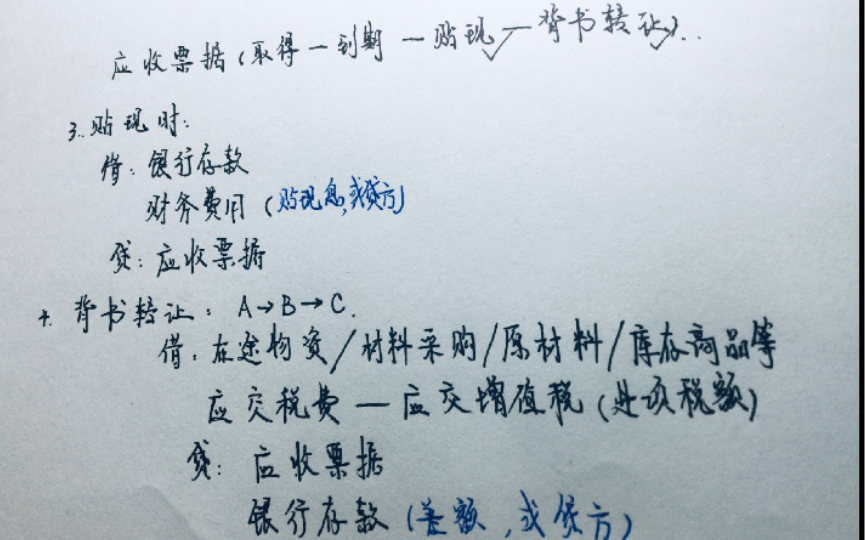 应收票据(取得一到期一贴现一背书转让)..
3.贴现时:
借:银行存款
财务费用(贴现息,或贷方)
贷:应收票据
4.背书转让:A→B→C.
借:在途物资/材料采购/原材料/库存商品等
应交税费一应交增值税(进项税额)
贷:应收票据
银行存款(差额,或贷方)